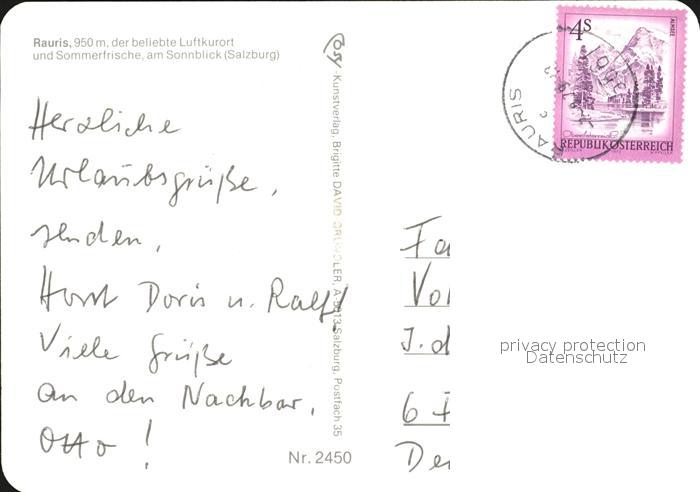 Rauris, 950 m, der beliebte Luftkurort
und Sommerfrische, am Sonnblick (Salzburg)
Herzliche
Urlaubsgrüße,
senden,
Horst Doris u. Ralf!
Viele Grüße
an den Nachbar,
Otto!
Cosy-Kunstverlag, Brigitte DAVID GRÜNDLER, A-5013 Salzburg, Postfach 35
Nr. 2450
4S
ALMSEE
Oberösterreich
REPUBLIK ÖSTERREICH
RAURIS
Fa
Vo
J.d
6 F
De
privacy protection
Datenschutz